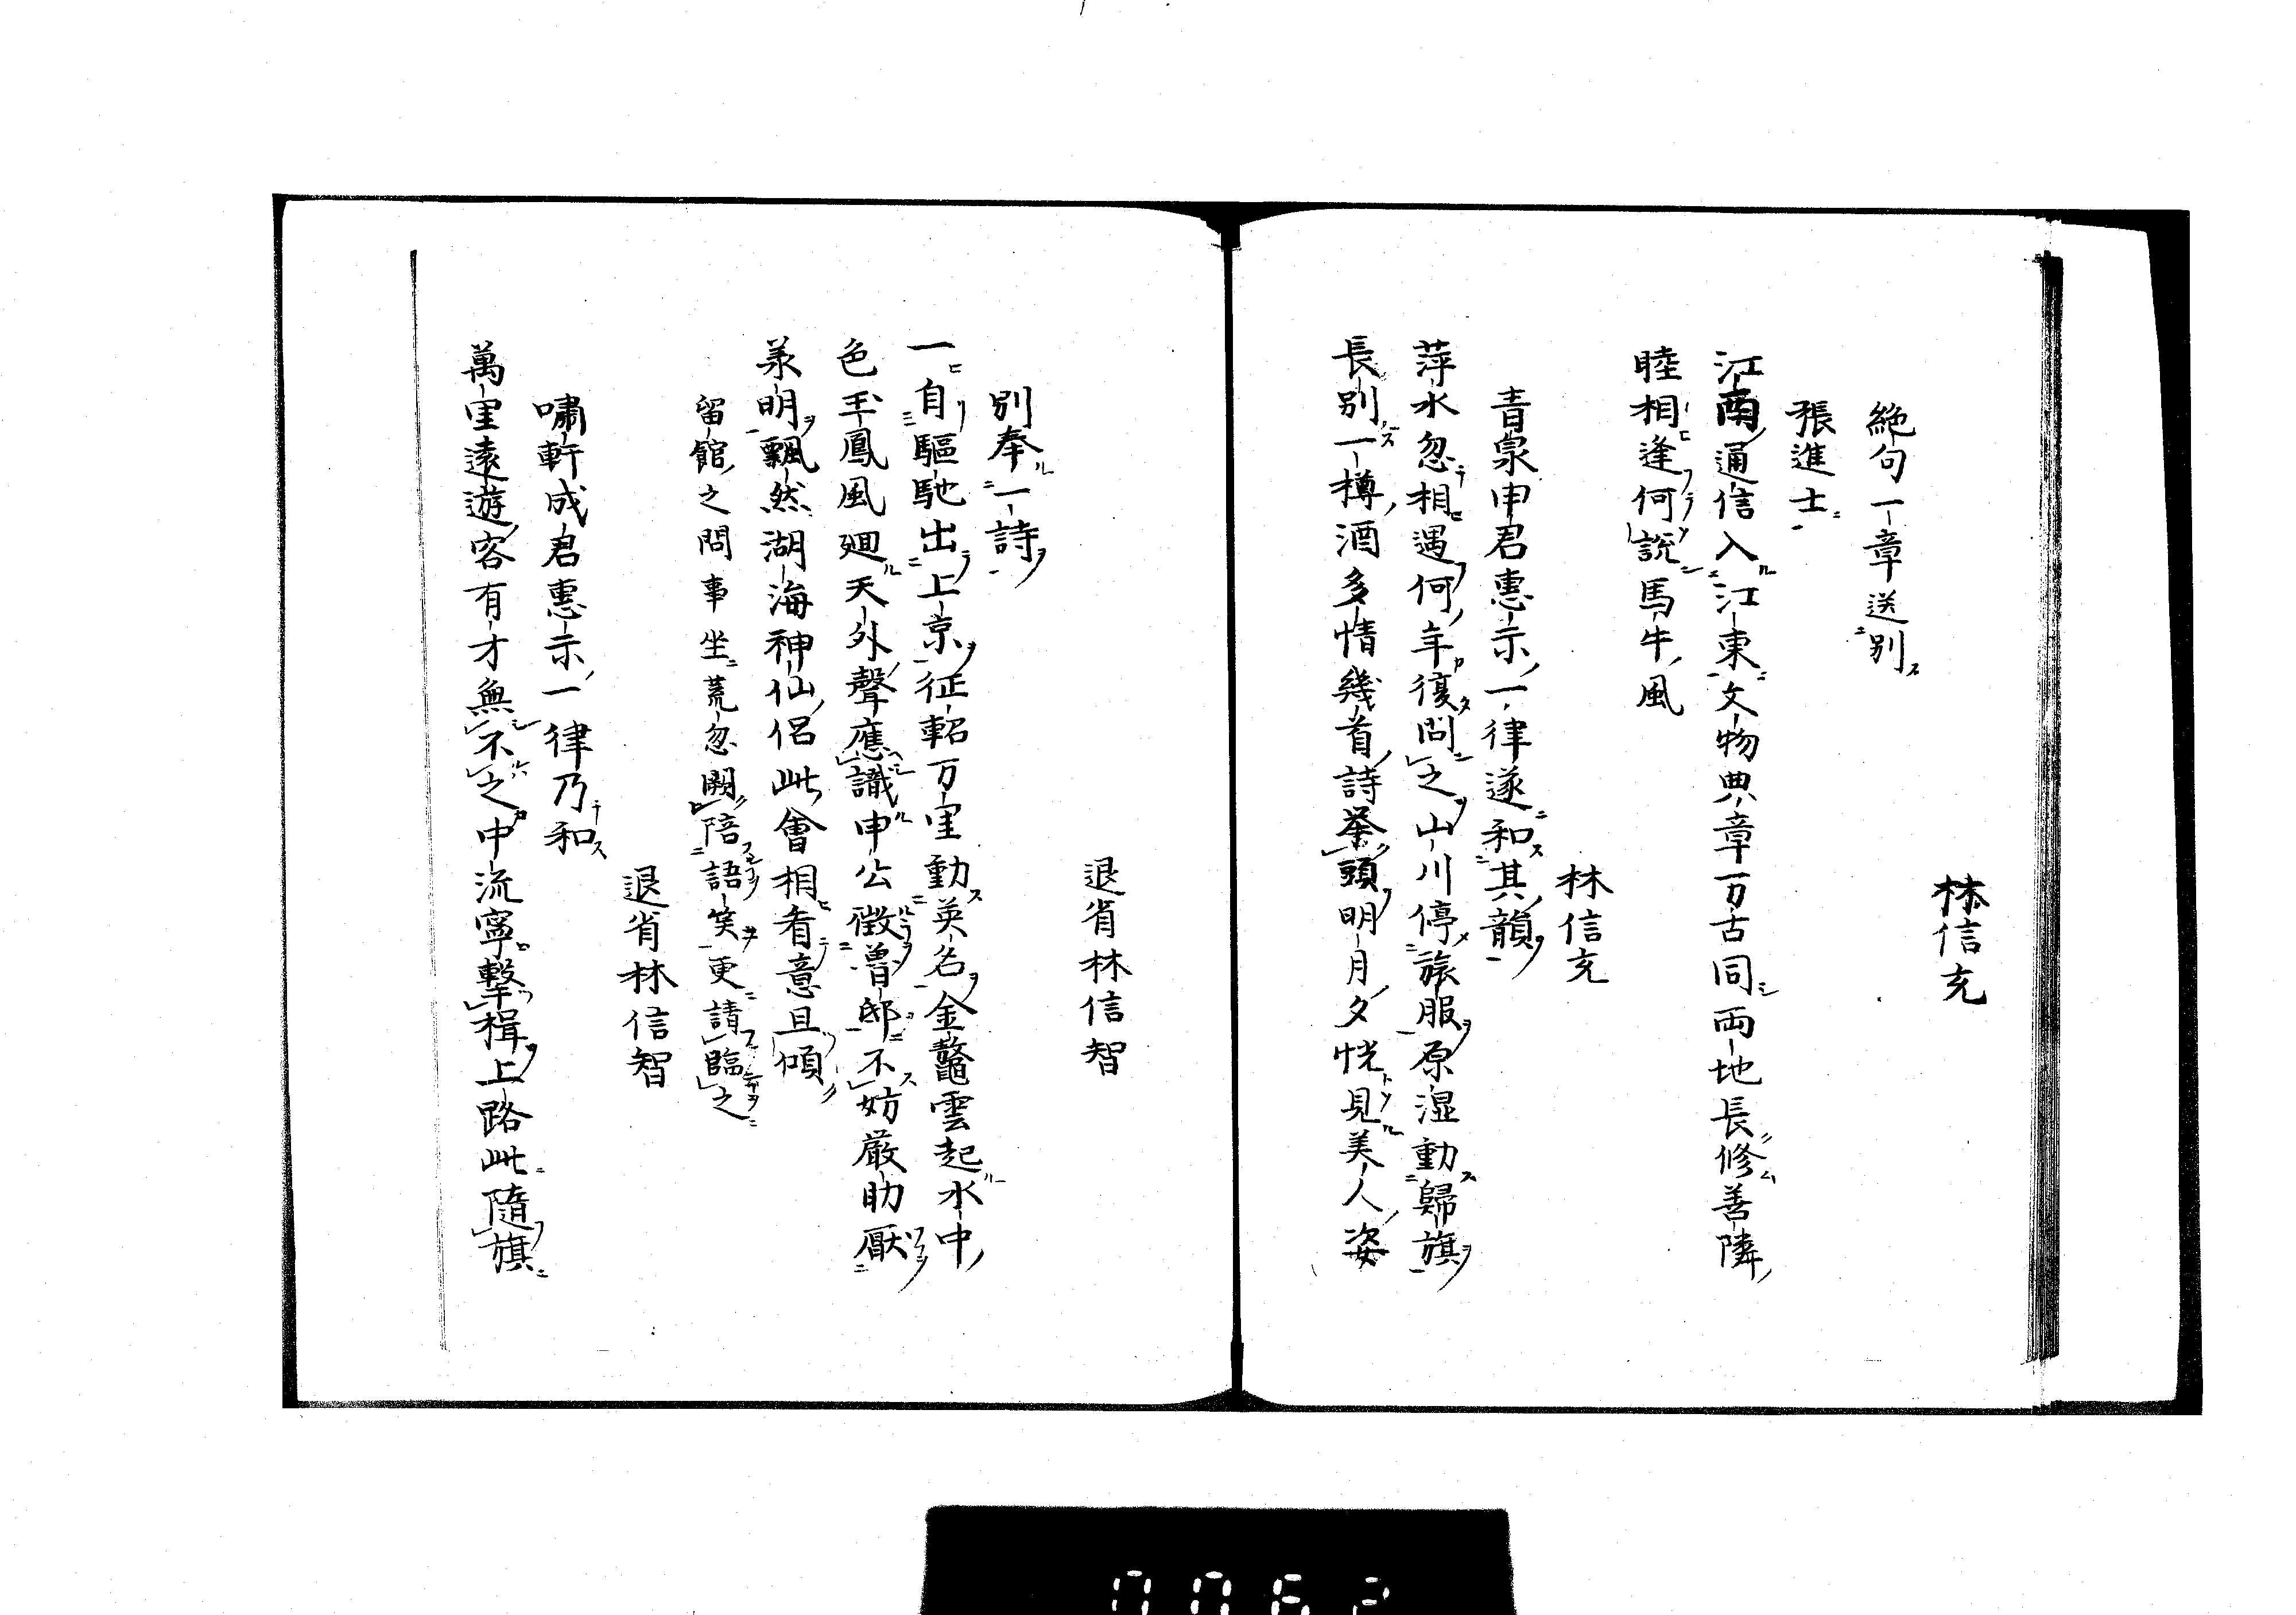 林信充
絶句一章送別
張進士
江南通信入江東文物典章万古同両地長修善隣
睦相逢何説馬牛風
林信充
青泉申君惠示一律遂和其韻
萍水忽相遇何年復問之山川停旅服原湿動歸旗
長別一樽酒多情幾首詩举頭明月夕恍見美人姿
退省林信智
別奉一詩
一自驅馳出上京征軺万里動英名金鼇雲起水中
色玉鳳風廻天外聲應識申公徴魯邸不妨厳助厭
承明飄然湖海神仙侶此會相看意且傾
留館之間事坐荒忽闕陪語笑更請臨之
退省林信智
嘯軒成君惠示一律乃和
萬里遠遊客有才無不之中流寧撃楫上路此隨旗
0062